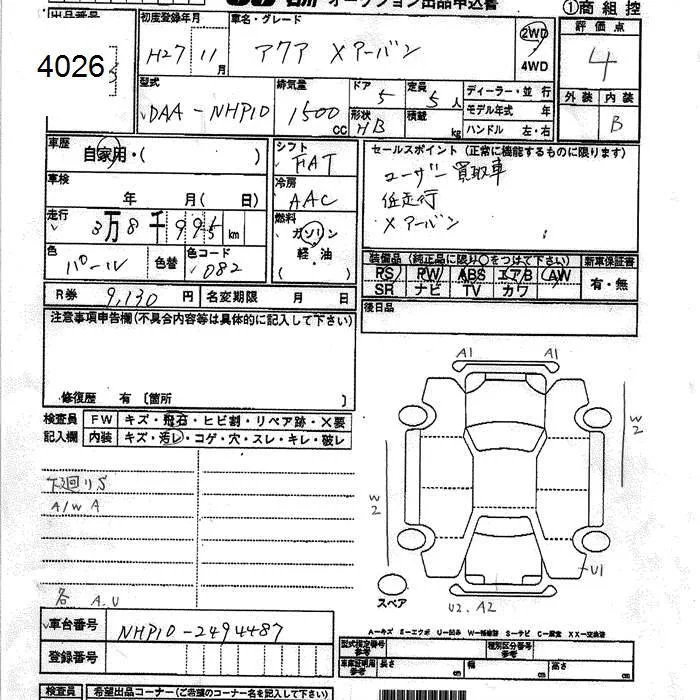 石川 オークション出品申込書
①商組控
出品番号
4026
初度登録年月
H27 11月
車名・グレード
アクア Xアーバン
2WD
4WD
評価点
4
外装 内装
B
型式
DAA-NHP10
排気量
1500 CC
ドア
5
定員
5人
形状
HB
積載
kg
ディーラー・並行
モデル年式 年
ハンドル 左・右
車歴
自家用・( )
シフト
FAT
セールスポイント(正常に機能するものに限ります)
ユーザー買取車
低走行
Xアーバン
車検
年 月( 日)
冷房
AAC
走行
3万8千995km
燃料
ガソリン
軽・油
( )
色
パール
色替
色コード
082
装備品(純正品に限り○をつけて下さい)
新車保証書
RS RW ABS エアB AW
SR ナビ TV カワ
有・無
R券 9,130 円
名変期限 月 日
後日品
注意事項申告欄(不具合内容等は具体的に記入して下さい)
修復歴 有 〔箇所 〕
検査員
記入欄
FW キズ・飛石・ヒビ割・リペア跡・X要
内装 キズ・汚レ・コゲ・穴・スレ・キレ・破レ
下廻りS
A/W A
各 A.U
A1 A1
W2
W2
U1
U2. A2
スペア
車台番号
NHP10-2494487
登録番号
A-キズ S-エクボ U-凹み W-補修跡 S-サビ C-腐食 XX-交換済
型式指定番号
参考
種別区分番号
参考
車庫証明用
参考
長さ cm
幅 cm
高さ cm
検査員
希望出品コーナー(ご希望のコーナー名を記入して下さい)